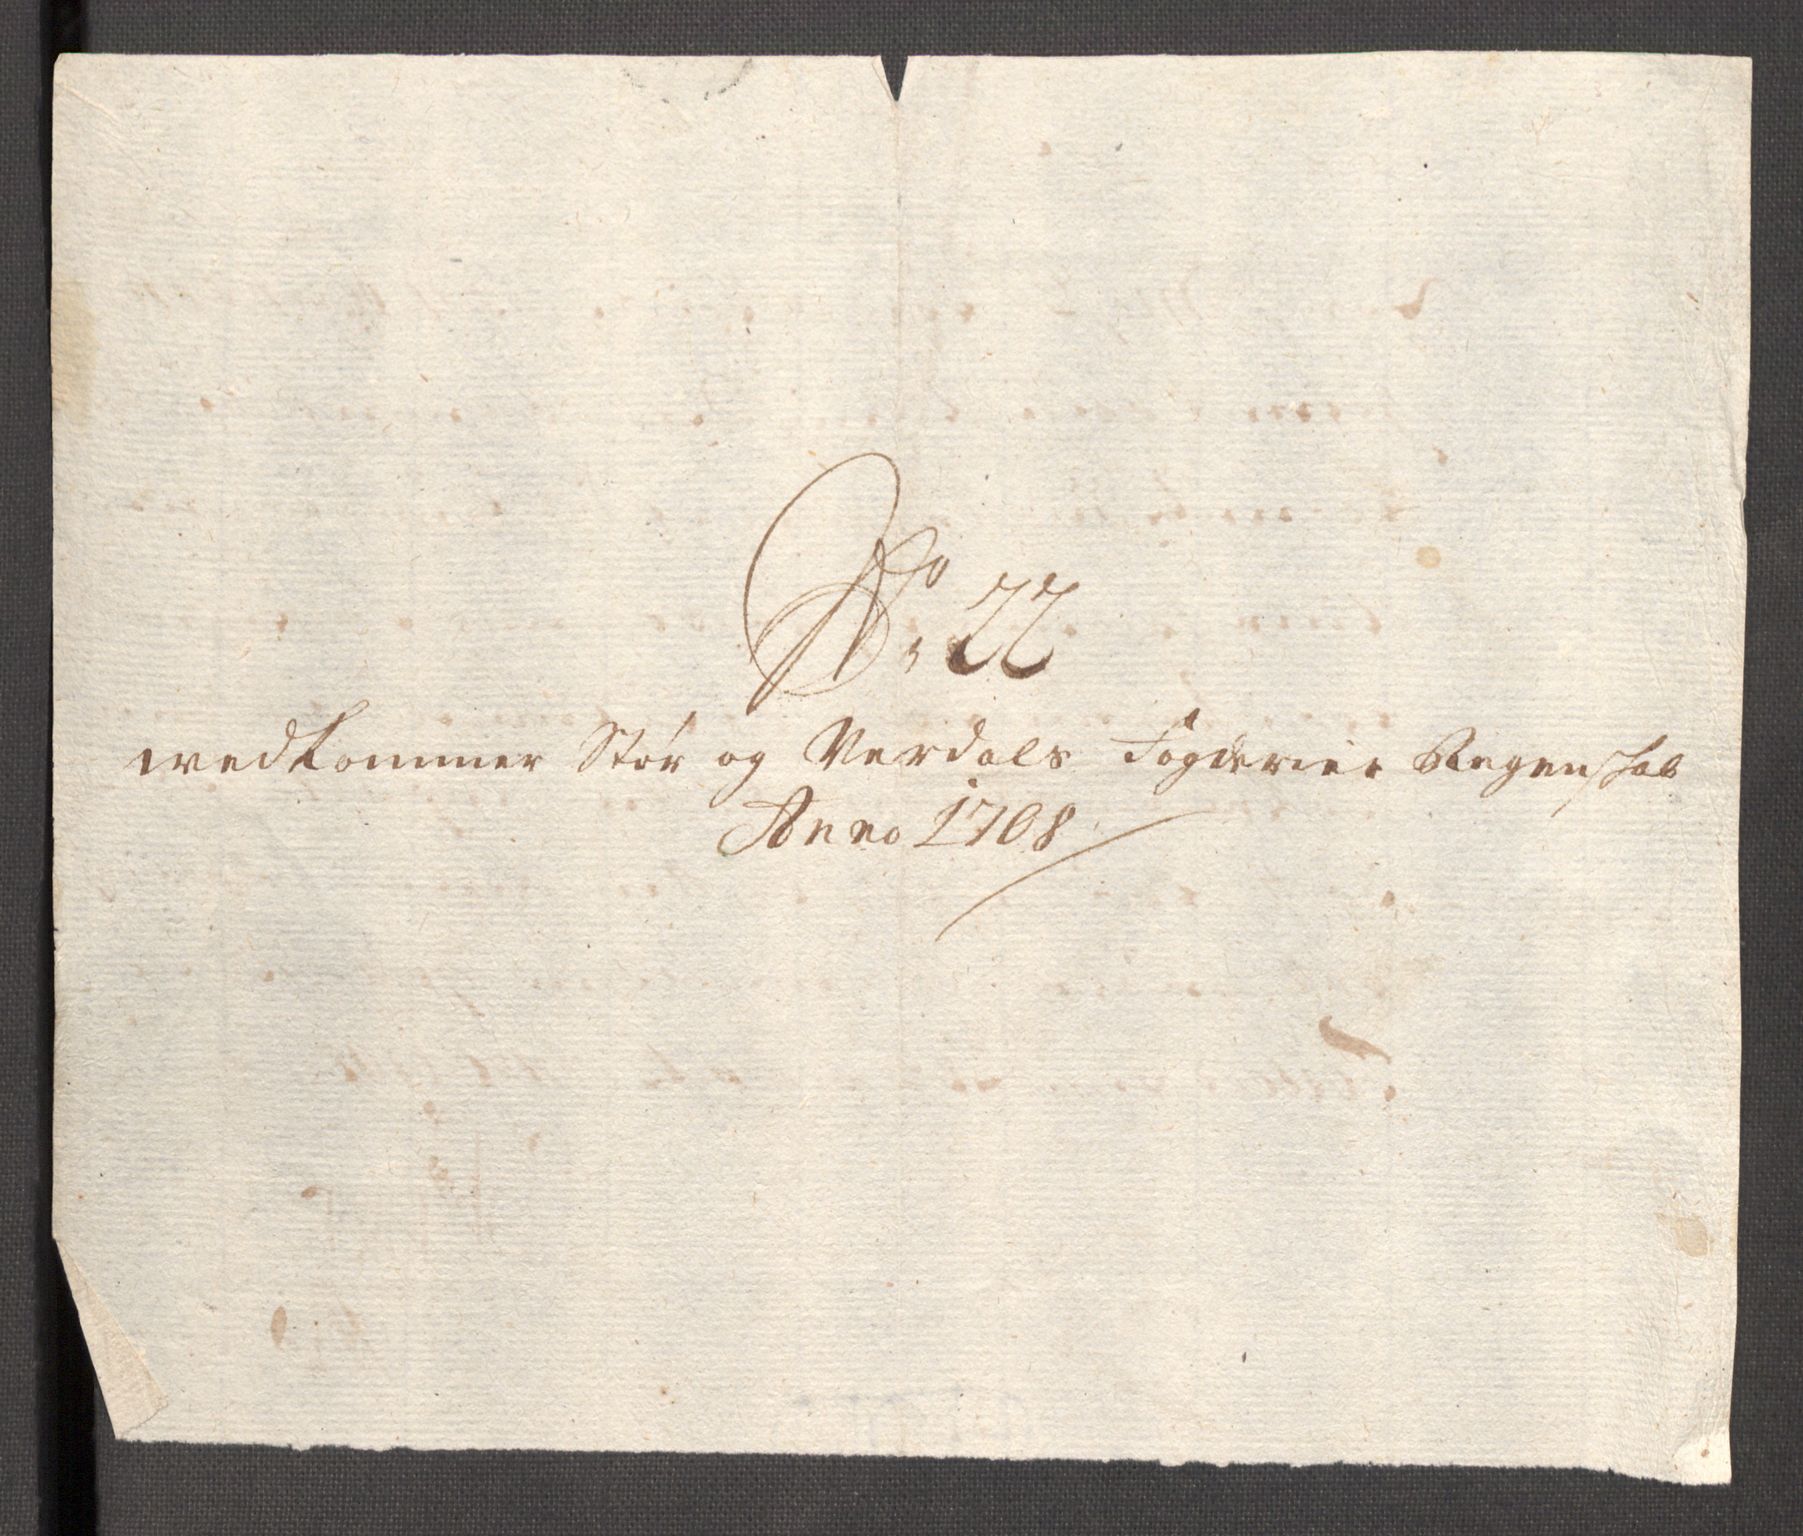 No. 22
wedkommer Stør og Verdals Fogderier Regenskab
Anno 1708